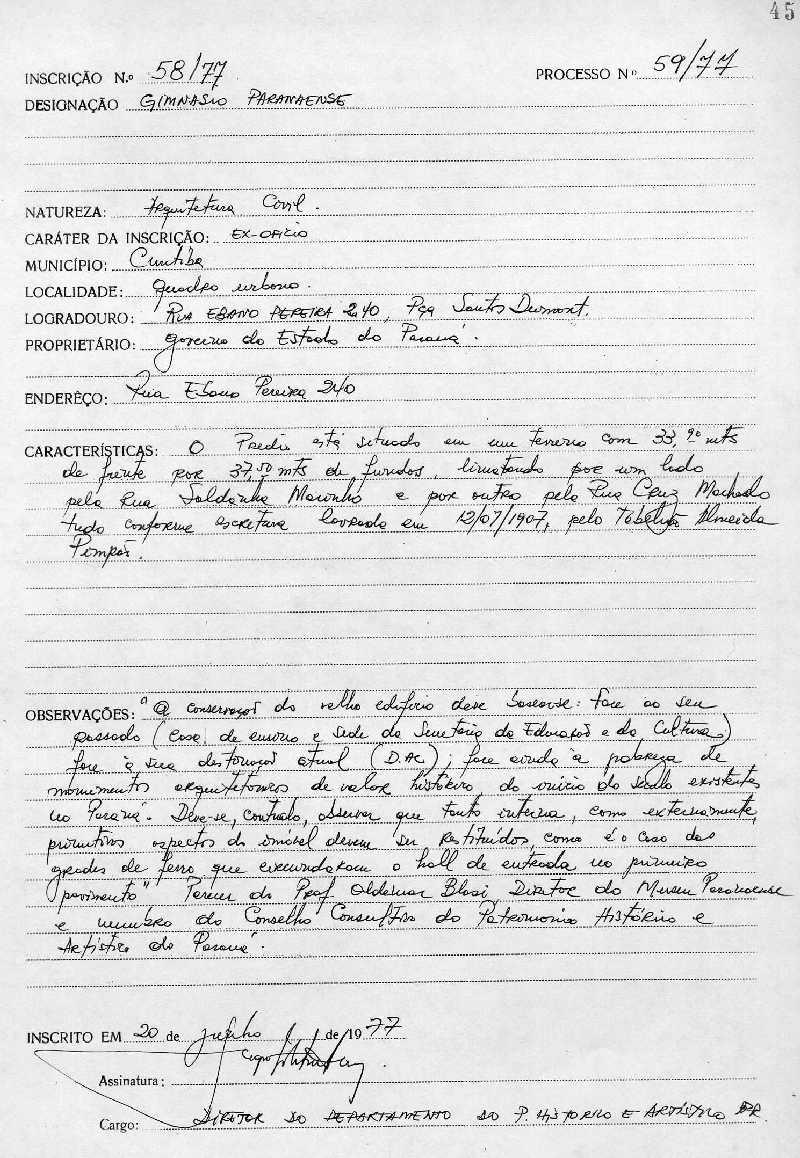 45
INSCRIÇÃO N.º 58/77 PROCESSO Nº 59/77
DESIGNAÇÃO GIMNASIO PARANAENSE
NATUREZA: Arquitetura Civil.
CARÁTER DA INSCRIÇÃO: EX-OFICIO
MUNICÍPIO: Curitiba
LOCALIDADE: quadro urbano.
LOGRADOURO: RUA EBANO PEREIRA 240, Pça Santos Dumont.
PROPRIETÁRIO: Governo do Estado do Paraná.
ENDERÊÇO: Rua Ebano Pereira 240
CARACTERÍSTICAS: O Predio está situado em um terreno com 33,90 mts
de frente por 37,50 mts de fundos, limitando por um lado
pela Rua Saldanha Marinho e por outro pela Rua Cruz Machado
tudo conforme escritura lavrada em 12/07/1907, pelo Tabelião Almeida
Pimpão.
OBSERVAÇÕES: "A conservação do velho edifício deve basear-se: face ao seu
passado (Casa de ensino e sede da Secretaria da Educação e da Cultura)
face à sua destinação atual (D.AC); face ainda à pobreza de
monumentos arquitetônicos de valor histórico, do início do século existentes
no Paraná. Deve-se, contudo, observar que tanto interna, como externamente,
primitivos aspectos do imóvel devem ser restituídos, como é o caso das
grades de ferro que circundavam o hall de entrada no primeiro
pavimento" Parecer do Prof. Oldemar Blasi Diretor do Museu Paranaense
e membro do Conselho Consultivo do Patrimonio Histórico e
Artístico do Paraná.
INSCRITO EM 20 de de 1977
Assinatura:
Cargo: DIRETOR DO DEPARTAMENTO DO P. HISTORICO E ARTÍSTICO PR